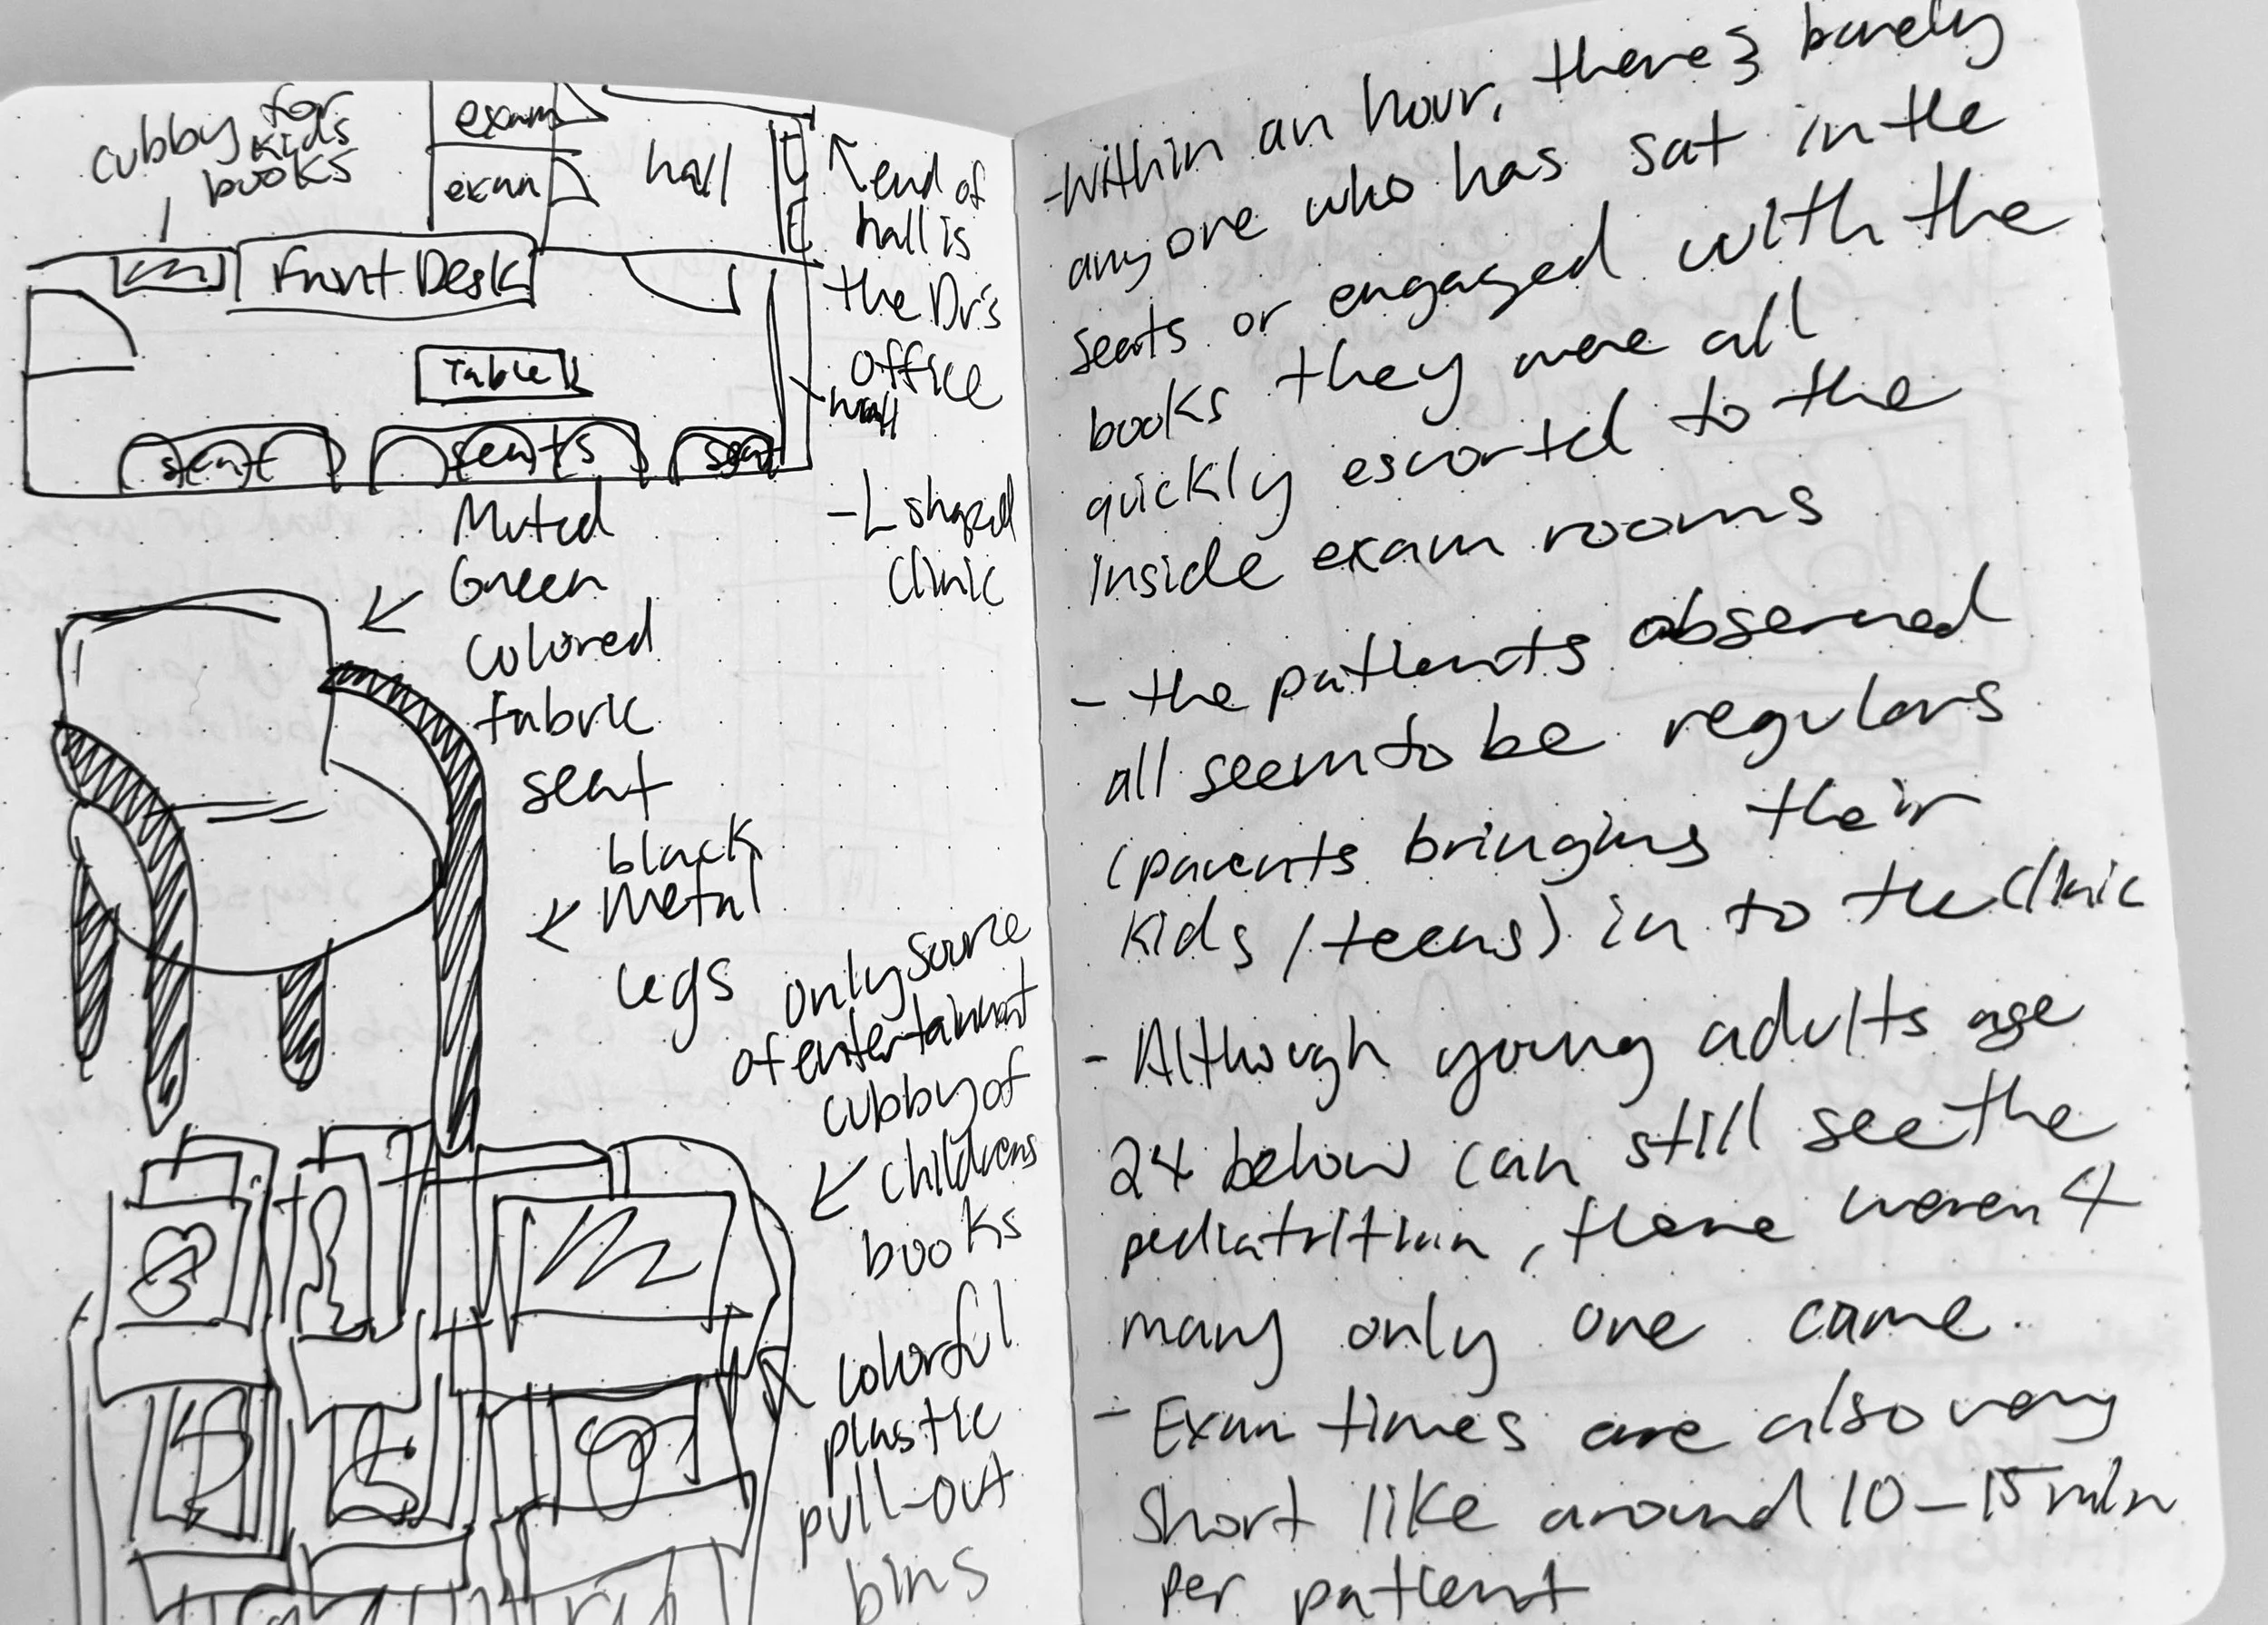 cubby for
kids
books
exam
exam
hall
end of
hall is
the Dr's
office
wall
Front Desk
Table
seat
seats
seat
- L shaped
clinic
Muted
Green
colored
fabric
seat
black
metal
legs
only source
of entertainment
cubby of
childrens
books
colorful
plastic
pull-out
bins
- Within an hour, there's barely
anyone who has sat in the
seats or engaged with the
books they were all
quickly escorted to the
inside exam rooms
- the patients observed
all seem to be regulars
(parents bringing their
kids / teens) in to the clinic
- Although young adults age
24 below can still see the
pediatritian, there weren't
many only one came.
- Exam times are also very
short like around 10-15 min
per patient